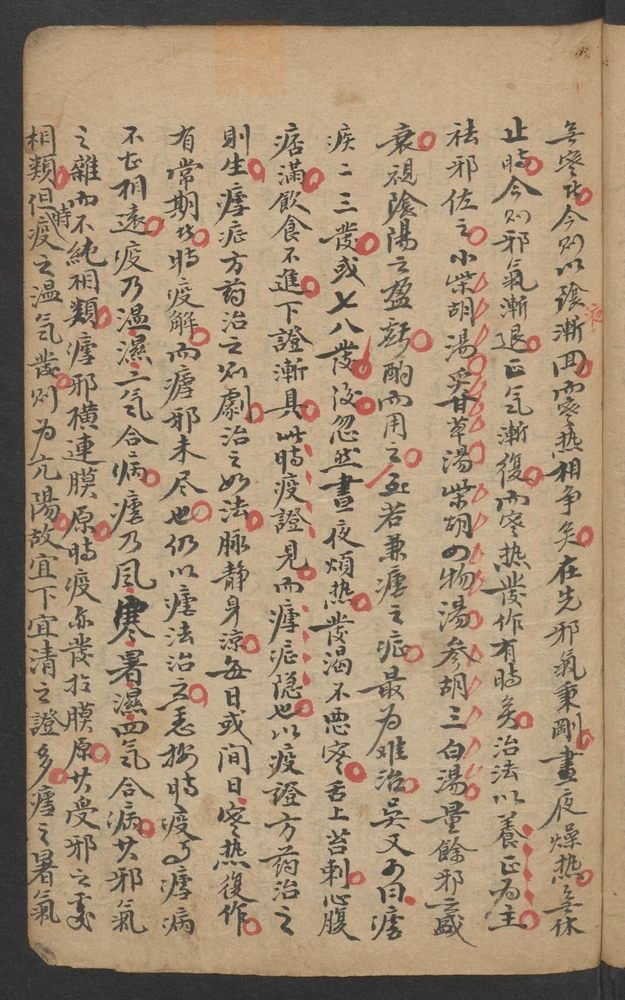 無寒也今則以陰漸回而寒热相争矣在先邪氣秉剛晝夜燥热無休
止時今則邪氣漸退正气漸復而寒热發作有時矣治法以養正為主
祛邪佐之小柴胡湯炙甘草湯柴胡四物湯参胡三白湯量餘邪之盛
衰視陰陽之盈虧酌而用之至若兼瘧之症最為难治吳又可曰瘧
疾二三發或七八發後忽然晝夜煩热發渴不悪寒舌上苔刺心腹
痞滿飲食不進下證漸具此時疫證見而瘧症隐也以疫證方药治之
則生瘧症方药治之則劇治之如法脉静身涼每日或间日寒热復作
有常期此時疫解而瘧邪未尽也仍以瘧法治之愚按時疫与瘧病
不甚相遠疫乃温濕二气合病瘧乃风寒暑濕四气合病其邪氣
之雜而不純相類瘧邪橫連膜原時疫亦發於膜原其受邪之處
相類但時疫之温气發則为亢陽故宜下宜清之證多瘧之暑氣